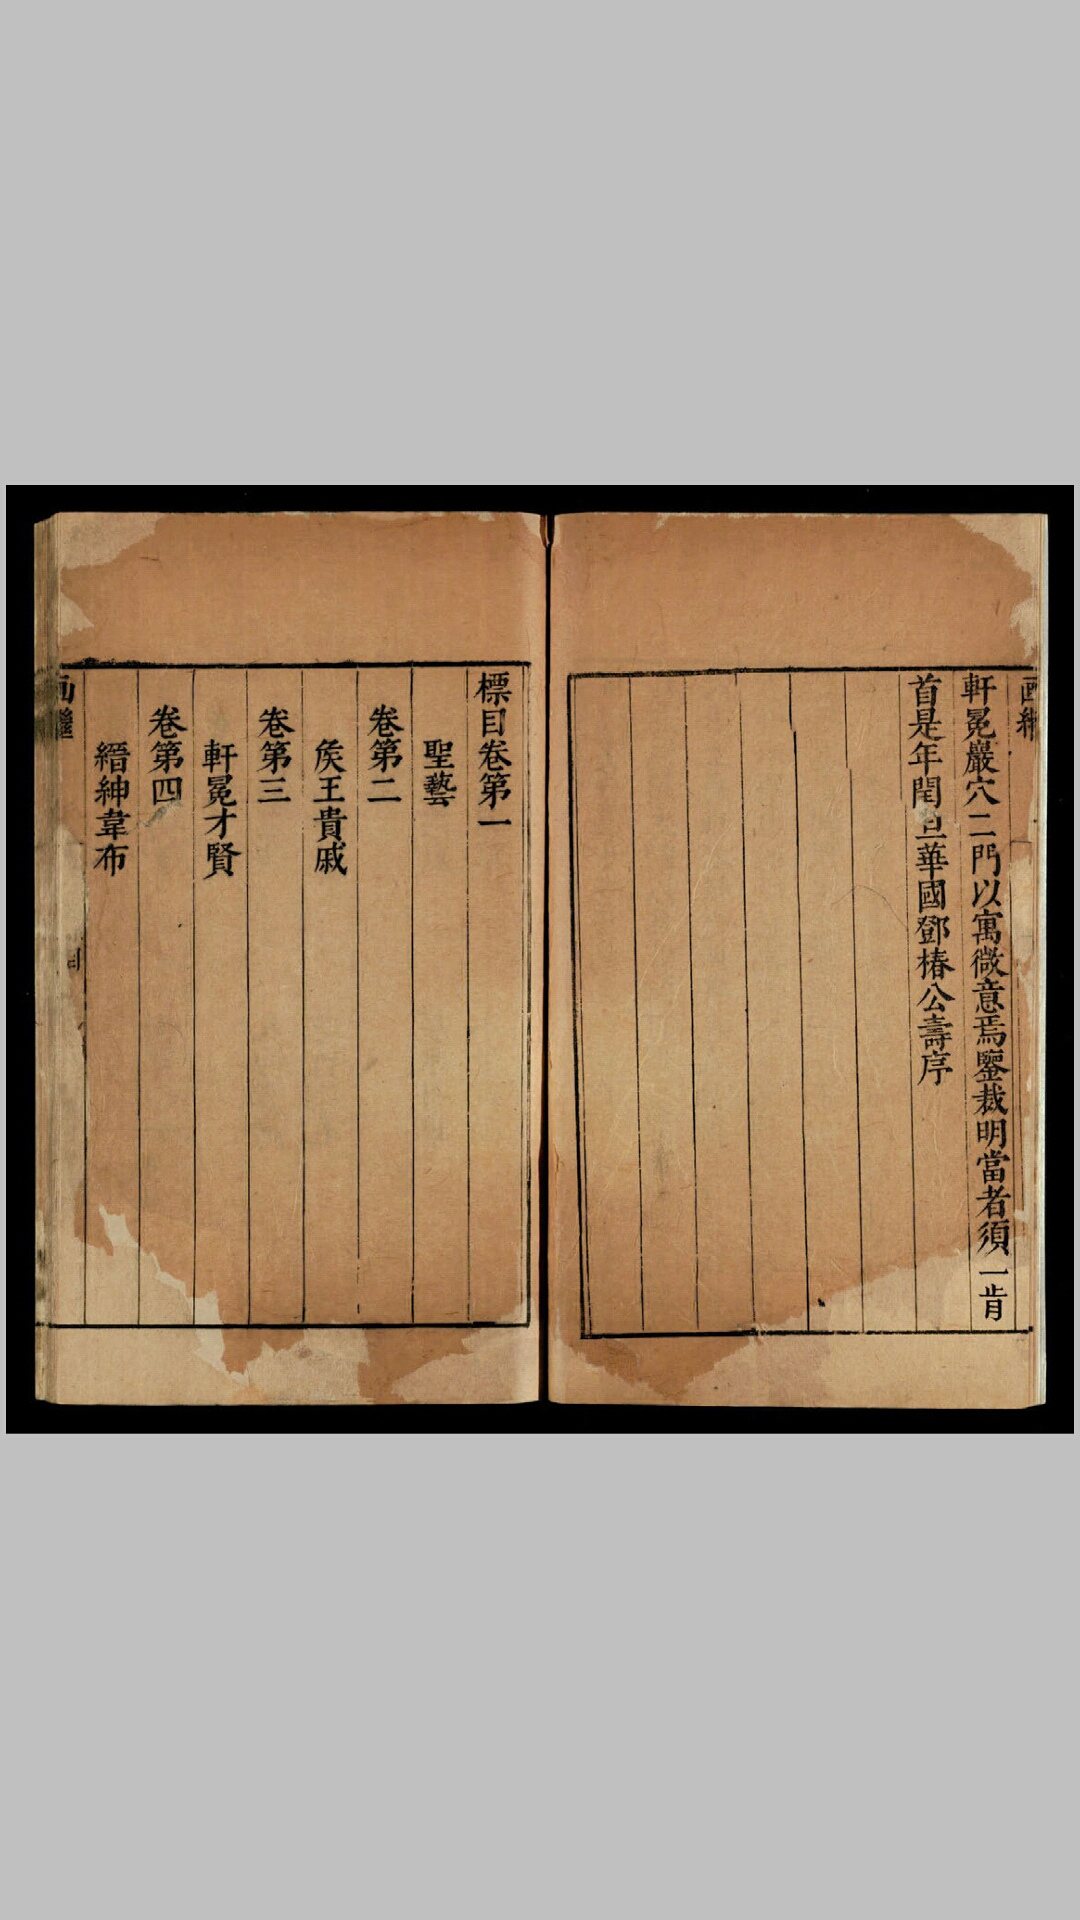 軒冕巖穴二門以寓微意焉鑒裁明當者須一肯
首是年閏旦華國鄧椿公壽序
標目卷第一
聖藝
卷第二
矦王貴戚
卷第三
軒冕才賢
卷第四
縉紳韋布
画繼